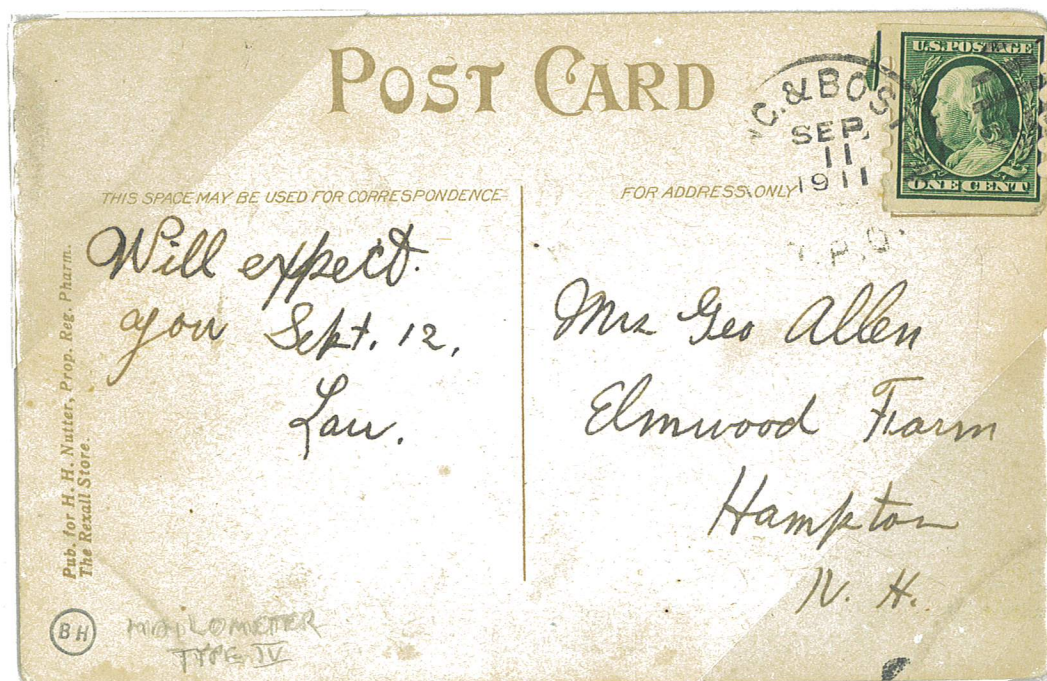 POST CARD
C. & BOST
SEP.
11
1911
R.P.O.
U.S. POSTAGE
ONE CENT
THIS SPACE MAY BE USED FOR CORRESPONDENCE
FOR ADDRESS ONLY
Will expect.
you Sept. 12,
Lau.
Mrs Geo Allen
Elmwood Farm
Hampton
N. H.
Pub. for H. H. Nutter, Prop. Reg. Pharm.
The Rexall Store.
BH
MAILOMETER
TYPE IV